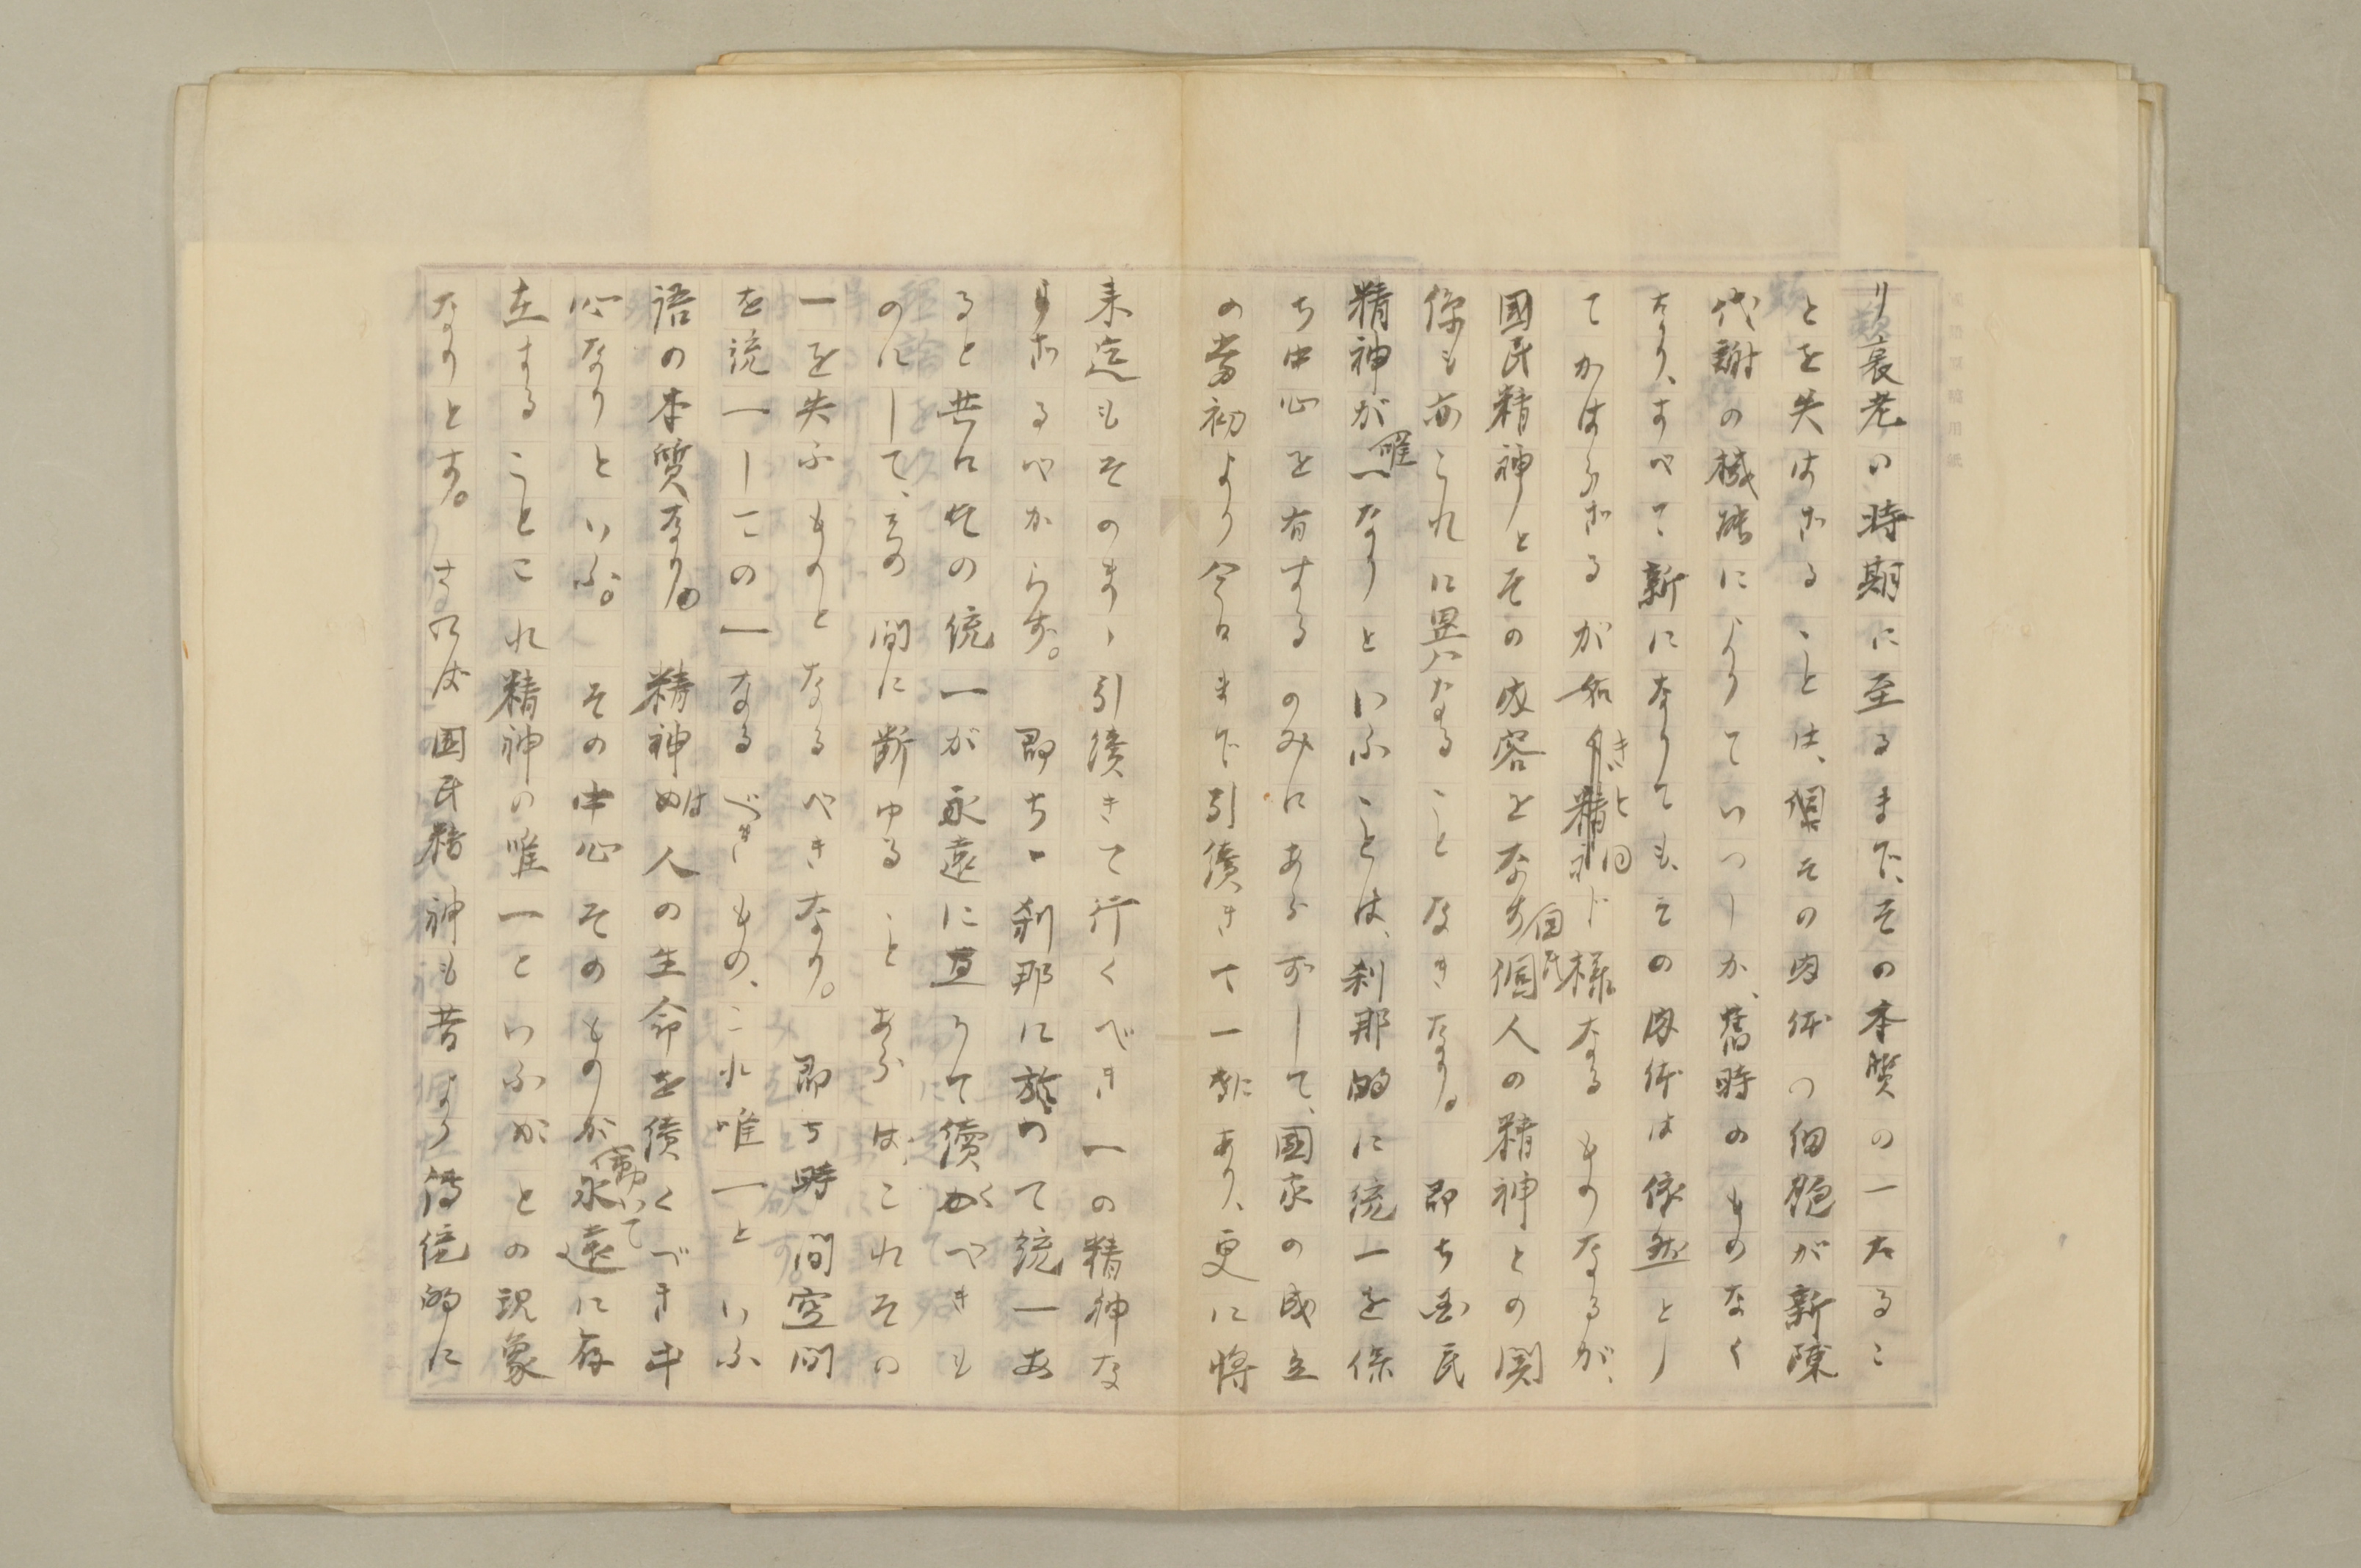 り衰老の時期に至るまで、その本質の一たるこ
とを失はざることは、個その肉体の細胞が新陳
代謝の機能によりていつしか、舊時のものなく
なり、すべて新になりても、その肉体は依然とし
てかはらざるが如きと同じ様なるものなるが、
國民精神とその成容をなす個人の精神との関
係も亦これに異なることなきなり。即ち国民
精神が唯一なりといふことは、刹那的に統一を保
ち中心を有するのみにあらずして、國家の成立
の當初より今日まで引續きて一あり、更に將
来迄もそのまゝ引續きて行くべき一の精神な
らざるべからず。即ち一刹那に於て統一あ
ると共にその統一が永遠に亘りて續くべきも
のにして、その間に断ゆることあらば、これその
一を失ふものとなるべきなり。即ち時間空間
を統一しての一なるべきもの、これ唯一といふ
語の本質なり。精神は人の生命を續くべき中
心なりといふ。その中心そのものが働いて永遠に存
在することこれ精神の唯一といふがとの現象
なりとす。されば国民精神も昔より傳統的に